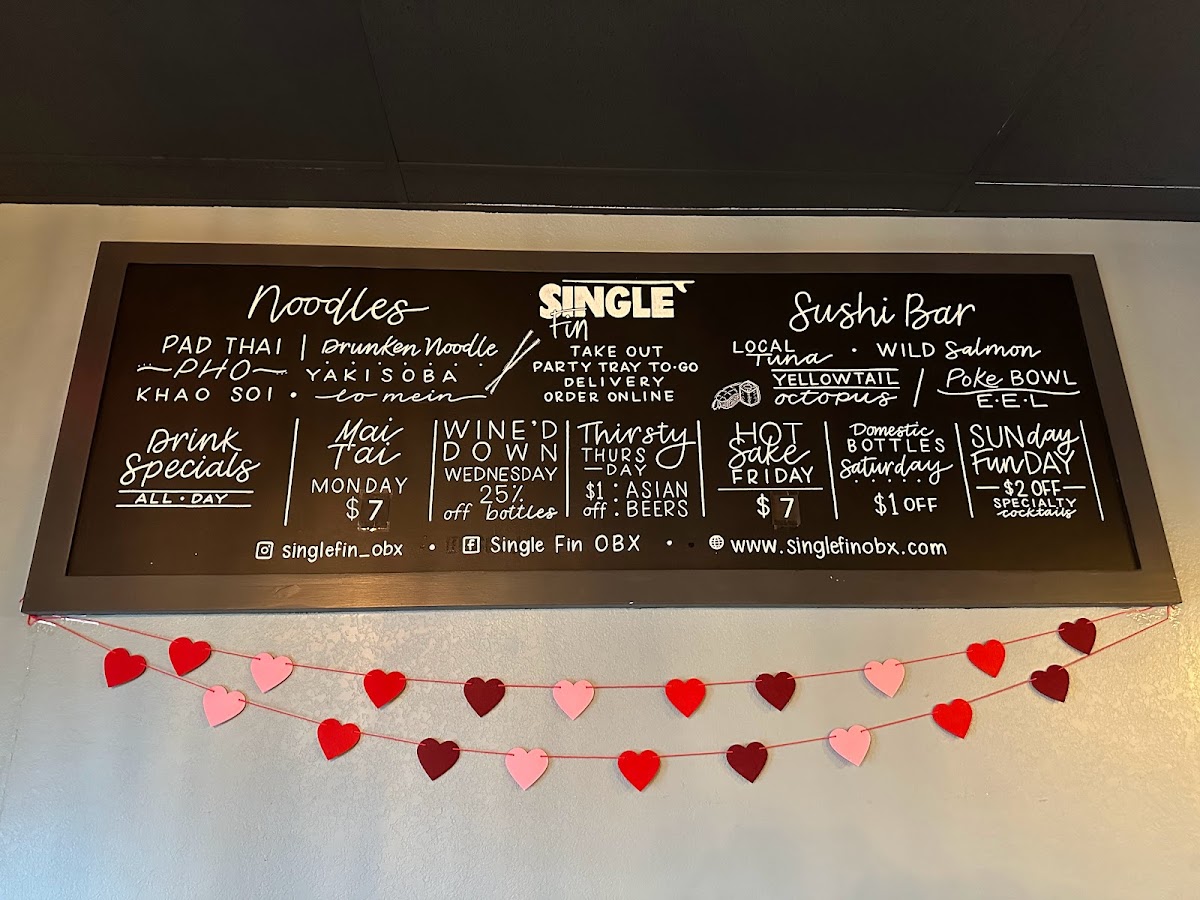 Noodles
PAD THAI | Drunken Noodle
PHO YAKISOBA
KHAO SOI • lo mein
SINGLE
fin
TAKE OUT
PARTY TRAY TO-GO
DELIVERY
ORDER ONLINE
Sushi Bar
LOCAL Tuna • WILD Salmon
YELLOWTAIL
octopus / Poke BOWL
E•E•L
Drink
Specials
ALL • DAY
Mai
Tai
MONDAY
$7
WINE'D
DOWN
WEDNESDAY
25%
off bottles
Thirsty
THURS
DAY
$1 : ASIAN
off : BEERS
HOT
Sake
FRIDAY
$7
Domestic
BOTTLES
Saturday
$1 OFF
SUNday
FunDAY
$2 OFF
SPECIALTY
cocktails
singlefin_obx • Single Fin OBX • www.singlefinobx.com